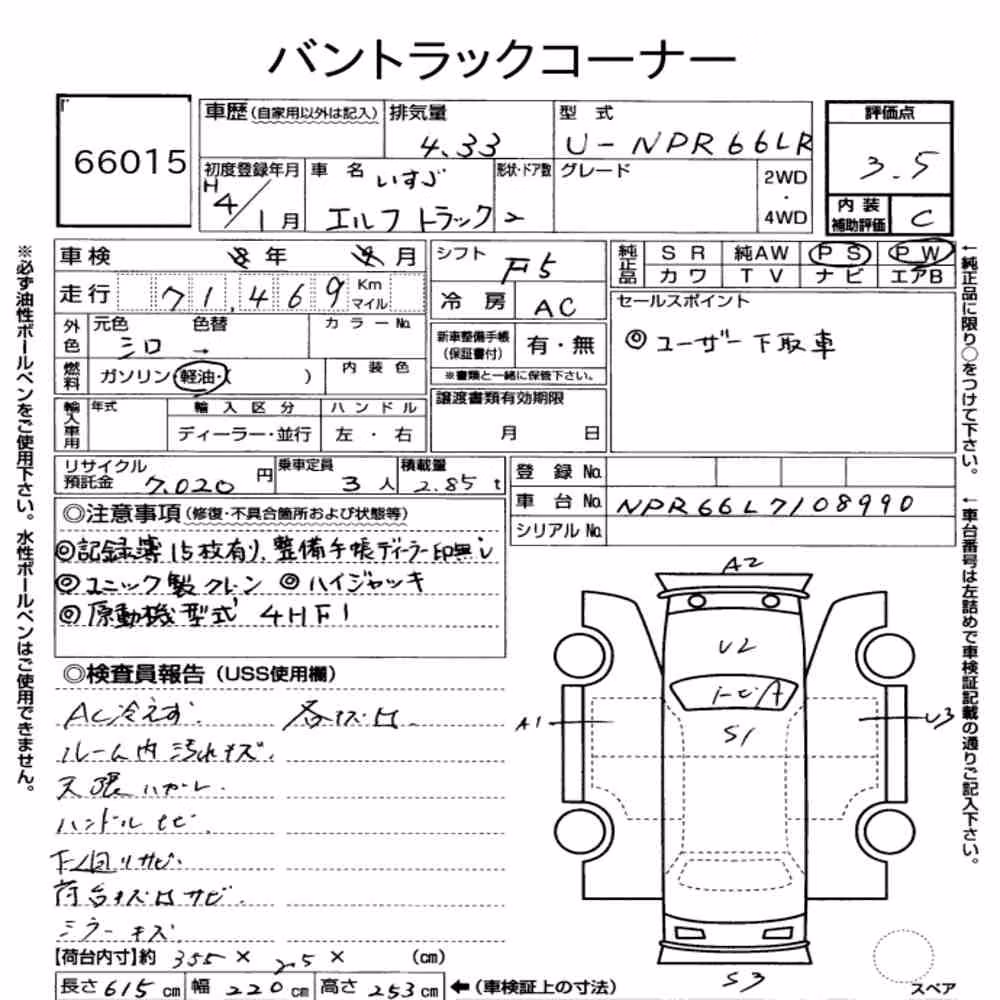 バントラックコーナー
66015
車歴(自家用以外は記入) 排気量 4.33 型式 U-NPR66LR
評価点 3.5
内装補助評価 C
初度登録年月 H4/1月 車名 いすゞ エルフトラック 形状・ドア数 2 グレード 2WD・4WD
車検 年 月
走行 71,469 Km マイル
シフト F5
冷房 AC
純正品 SR 純AW PS PW
カワ TV ナビ エアB
外色 元色 シロ 色替 → カラーNo.
燃料 ガソリン・軽油・( ) 内装色
新車整備手帳(保証書付) 有・無
※書類と一緒に保管下さい。
セールスポイント
◎ユーザー下取車
輸入車用 年式 輸入区分 ディーラー・並行 ハンドル 左・右
譲渡書類有効期限 月 日
リサイクル預託金 7.020円 乗車定員 3人 積載量 2.85t
登録No.
車台No. NPR66L7108990
シリアルNo.
◎注意事項(修復・不具合箇所および状態等)
◎記録簿15枚有り、整備手帳ディーラー印無し
◎ユニック製クレーン ◎ハイジャッキ
◎原動機型式 4HF1
◎検査員報告(USS使用欄)
AC冷えず. 各キズ凹.
ルーム内汚れキズ.
天張ハガレ.
ハンドルセビ.
下廻りサビ.
荷台キズ凹サビ.
ミラーキズ
【荷台内寸】約 355 × 205 × (cm)
長さ615cm 幅220cm 高さ253cm ←(車検証上の寸法)
A2
U2
トビA
S1
A1
U3
S3
スペア
※必ず油性ボールペンをご使用下さい。水性ボールペンはご使用できません。
←純正品に限り○をつけて下さい。
←車台番号は左詰めで車検証記載の通りご記入下さい。